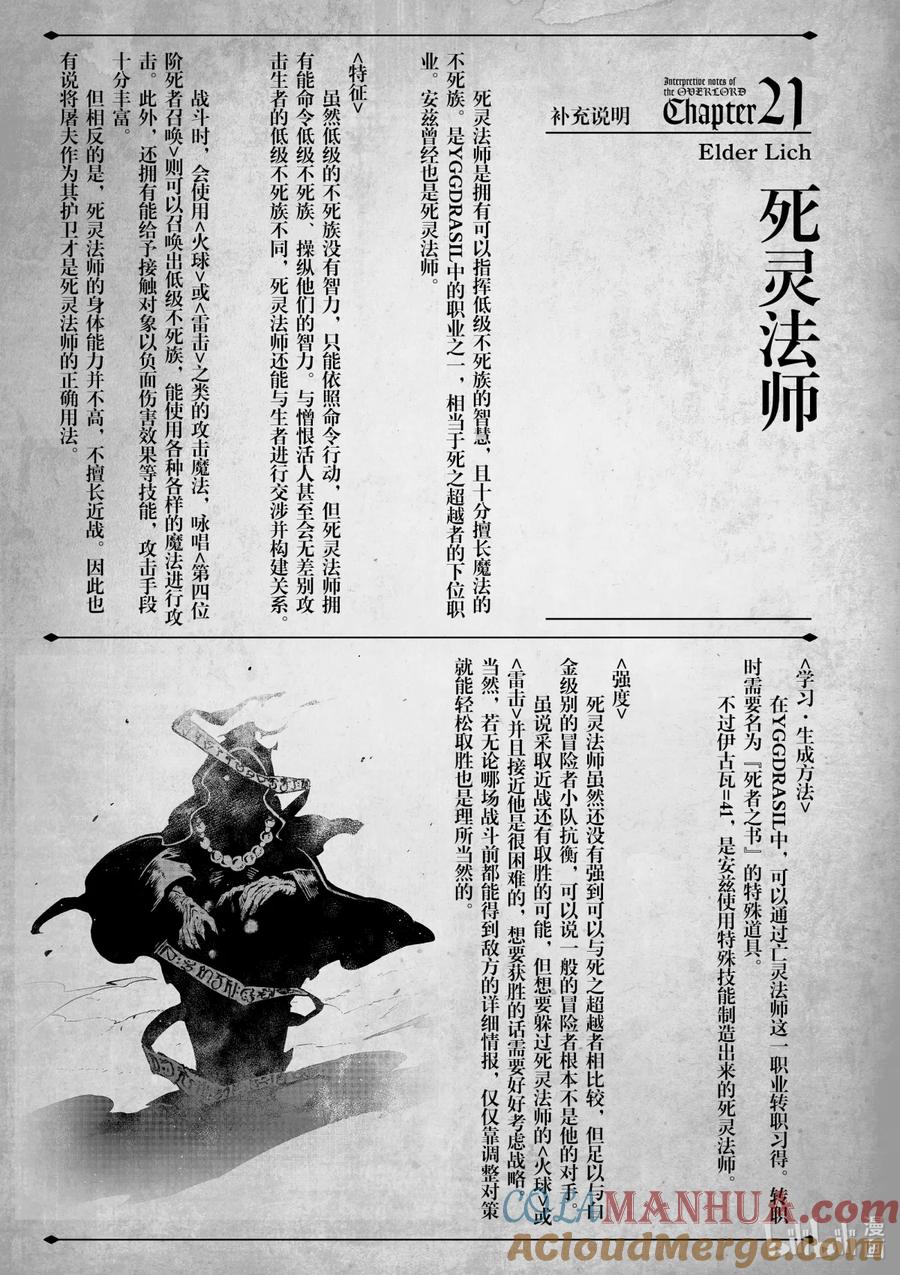 Interpretive notes of
the OVERLORD
Chapter 21
补充说明
Elder Lich
死灵法师
死灵法师是拥有可以指挥低级不死族的智慧，且十分擅长魔法的
不死族。是YGGDRASIL中的职业之一，相当于死之超越者的下位职
业。安兹曾经也是死灵法师。
<特征>
虽然低级的不死族没有智力，只能依照命令行动，但死灵法师拥
有能命令低级不死族、操纵他们的智力。与憎恨活人甚至会无差别攻
击生者的低级不死族不同，死灵法师还能与生者进行交涉并构建关系。
战斗时，会使用<火球>或<雷击>之类的攻击魔法，咏唱<第四位
阶死者召唤>则可以召唤出低级不死族，能使用各种各样的魔法进行攻
击。此外，还拥有能给予接触对象以负面伤害效果等技能，攻击手段
十分丰富。
但相反的是，死灵法师的身体能力并不高，不擅长近战。因此也
有说将屠夫作为其护卫才是死灵法师的正确用法。
<学习·生成方法>
在YGGDRASIL中，可以通过亡灵法师这一职业转职习得。转职
时需要名为『死者之书』的特殊道具。
不过伊古瓦=41，是安兹使用特殊技能制造出来的死灵法师。
<强度>
死灵法师虽然还没有强到可以与死之超越者相比较，但足以与白
金级别的冒险者小队抗衡，可以说一般的冒险者根本不是他的对手。
虽说采取近战还有取胜的可能，但想要躲过死灵法师的<火球>或
<雷击>并且接近他是很困难的，想要获胜的话需要好好考虑战略。
当然，若无论哪场战斗前都能得到敌方的详细情报，仅仅靠调整对策
就能轻松取胜也是理所当然的。
COLAMANHUA.com
ACloudMerge.com
漫画